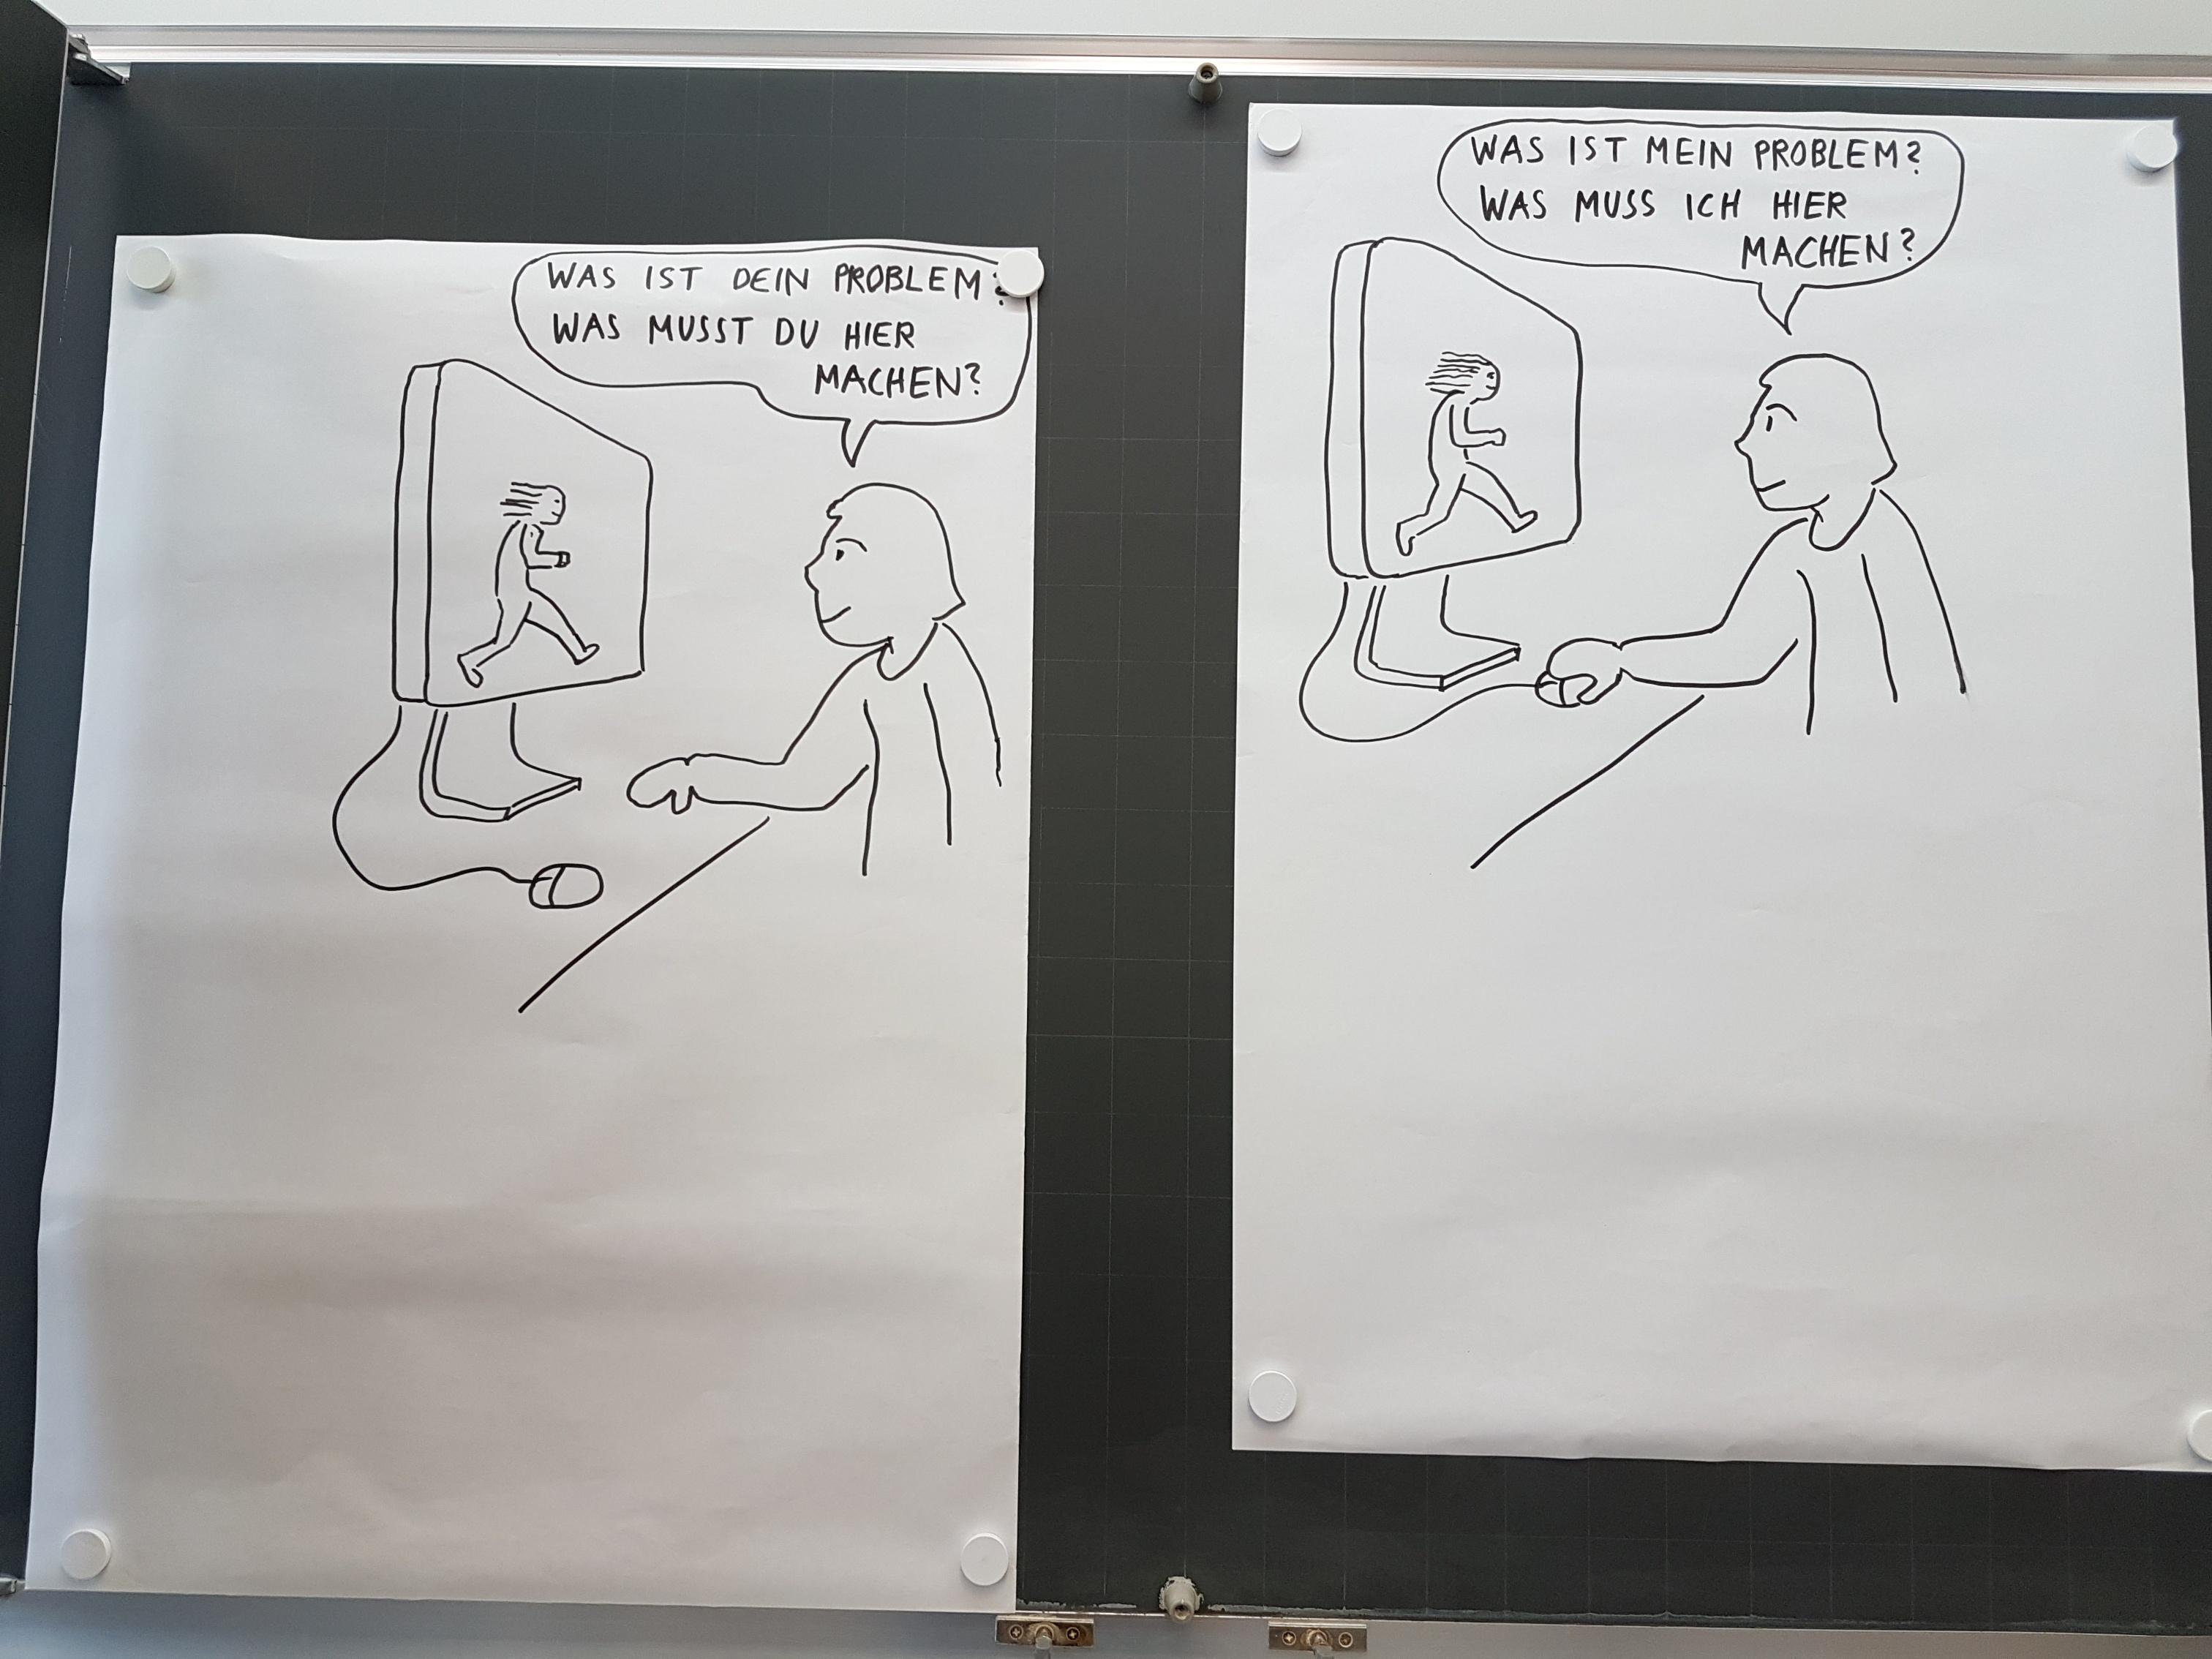 WAS IST DEIN PROBLEM?
WAS MUSST DU HIER
MACHEN?
WAS IST MEIN PROBLEM?
WAS MUSS ICH HIER
MACHEN?